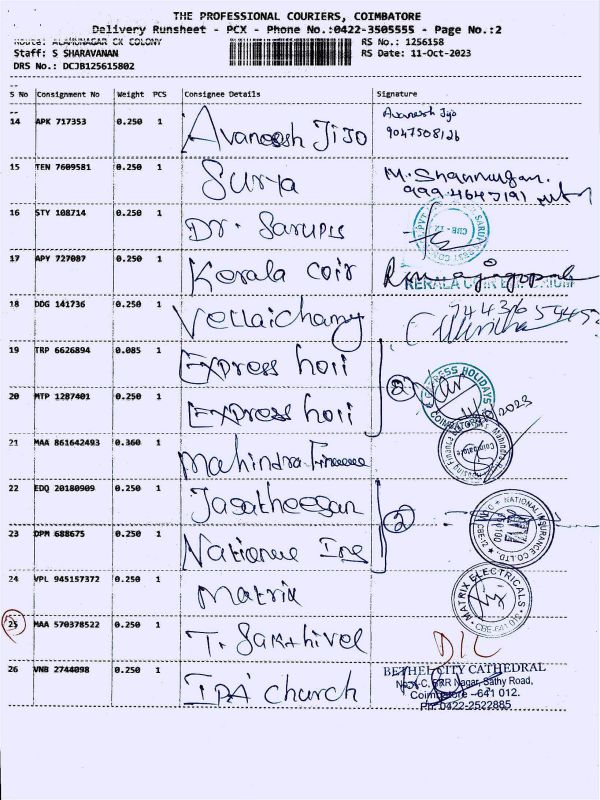 THE PROFESSIONAL COURIERS, COIMBATORE
Delivery Runsheet - PCX - Phone No.:0422-3505555 - Page No.:2
Route: ALAMUNAGAR CK COLONY RS No.: 1256158
Staff: S SHARAVANAN RS Date: 11-Oct-2023
DRS No.: DCJB125615802
S No Consignment No Weight PCS Consignee Details Signature
14 APK 717353 0.250 1 Avaneesh Jijo Avaneesh Jijo
9047508126
15 TEN 7609581 0.250 1 Surya M. Shanmugan.
999 4647191
16 STY 108714 0.250 1 Dr. Sarupus
17 APY 727087 0.250 1 Kerala coir
KERALA COIR EMPORIUM
18 DDG 141736 0.250 1 Vellaichamy
19 TRP 6626894 0.085 1 Express holi
20 MTP 1287401 0.250 1 Express holi 2 EXPRESS HOLIDAYS COIMBATORE
21 MAA 861642493 0.360 1 Mahindra Finance
22 EDQ 20180909 0.250 1 Jagatheesan 2
23 DPM 688675 0.250 1 National Ins NATIONAL INSURANCE CO.LTD.
24 VPL 945157372 0.250 1 Matrix MATRIX ELECTRICALS CBE-641 0
25 MAA 570378522 0.250 1 T. Sakthivel D/L
26 VNB 2744098 0.250 1 IPA church BETHEL CITY CATHEDRAL
RR Nagar, Sathy Road,
Coimbatore -641 012.
Ph: 0422-2522885